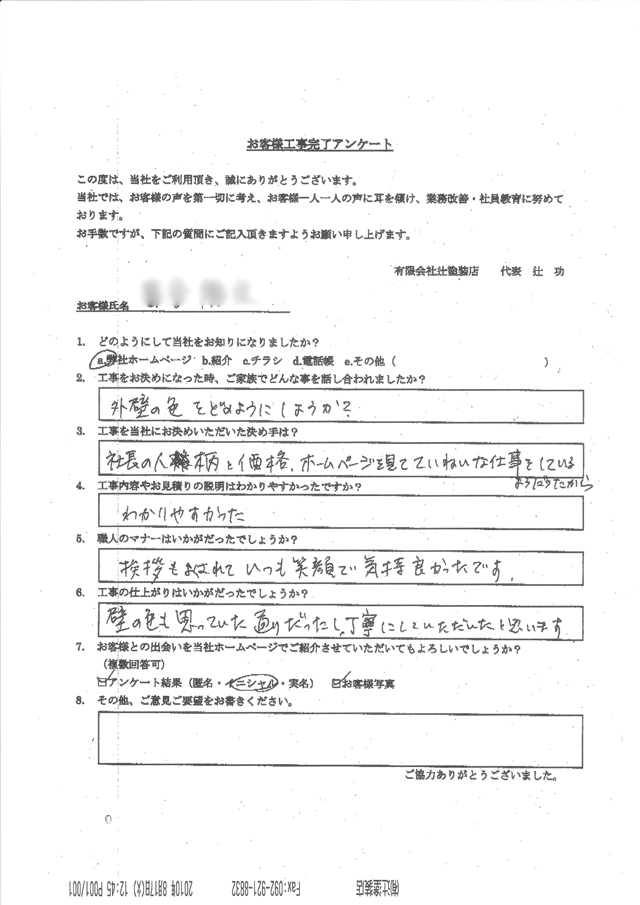 お客様工事完了アンケート
この度は、当社をご利用頂き、誠にありがとうございます。
当社では、お客様の声を第一切に考え、お客様一人一人の声に耳を傾け、業務改善・社員教育に努めて
おります。
お手数ですが、下記の質問にご記入頂きますようお願い申し上げます。
有限会社辻塗装店 代表 辻 功
お客様氏名
1. どのようにして当社をお知りになりましたか?
a.弊社ホームページ b.紹介 c.チラシ d.電話帳 e.その他 ( )
2. 工事をお決めになった時、ご家族でどんな事を話し合われましたか?
外壁の色をどのようにしようか?
3. 工事を当社にお決めいただいた決め手は?
社長の人柄と価格、ホームページを見てていねいな仕事をしている
ようだったから
4. 工事内容やお見積りの説明はわかりやすかったですか?
わかりやすかった
5. 職人のマナーはいかがだったでしょうか?
挨拶もされていつも笑顔で気持良かったです。
6. 工事の仕上がりはいかがだったでしょうか?
壁の色も思っていた通りだったし、丁寧にしていただいたと思います
7. お客様との出会いを当社ホームページでご紹介させていただいてもよろしいでしょうか?
(複数回答可)
☑アンケート結果 (匿名・イニシャル・実名) ☑お客様写真
8. その他、ご意見ご要望をお書きください。
ご協力ありがとうございました。
㈲辻塗装店 Fax:092-921-8832 2010年 8月17日(火) 12:45 P001/001